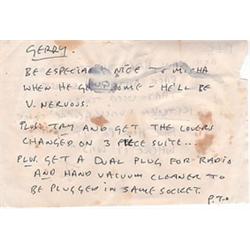 GERRY.
BE ESPECIALLY NICE TO MICHA
WHEN HE GETS HOME - HE'LL BE
V. NERVOUS.
PLUS. TRY AND GET THE COVERS
CHANGED ON 3 PIECE SUITE..
PLUS. GET A DUAL PLUG FOR RADIO
AND HAND VACUUM CLEANER TO
BE PLUGGED IN SAME SOCKET.
P.T.O